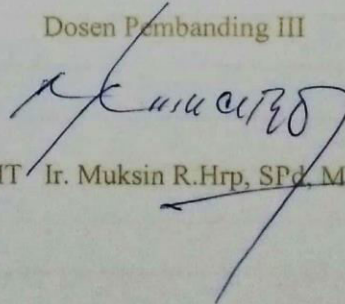 Dosen Pembanding III
IT Ir. Muksin R.Hrp, SPd, M